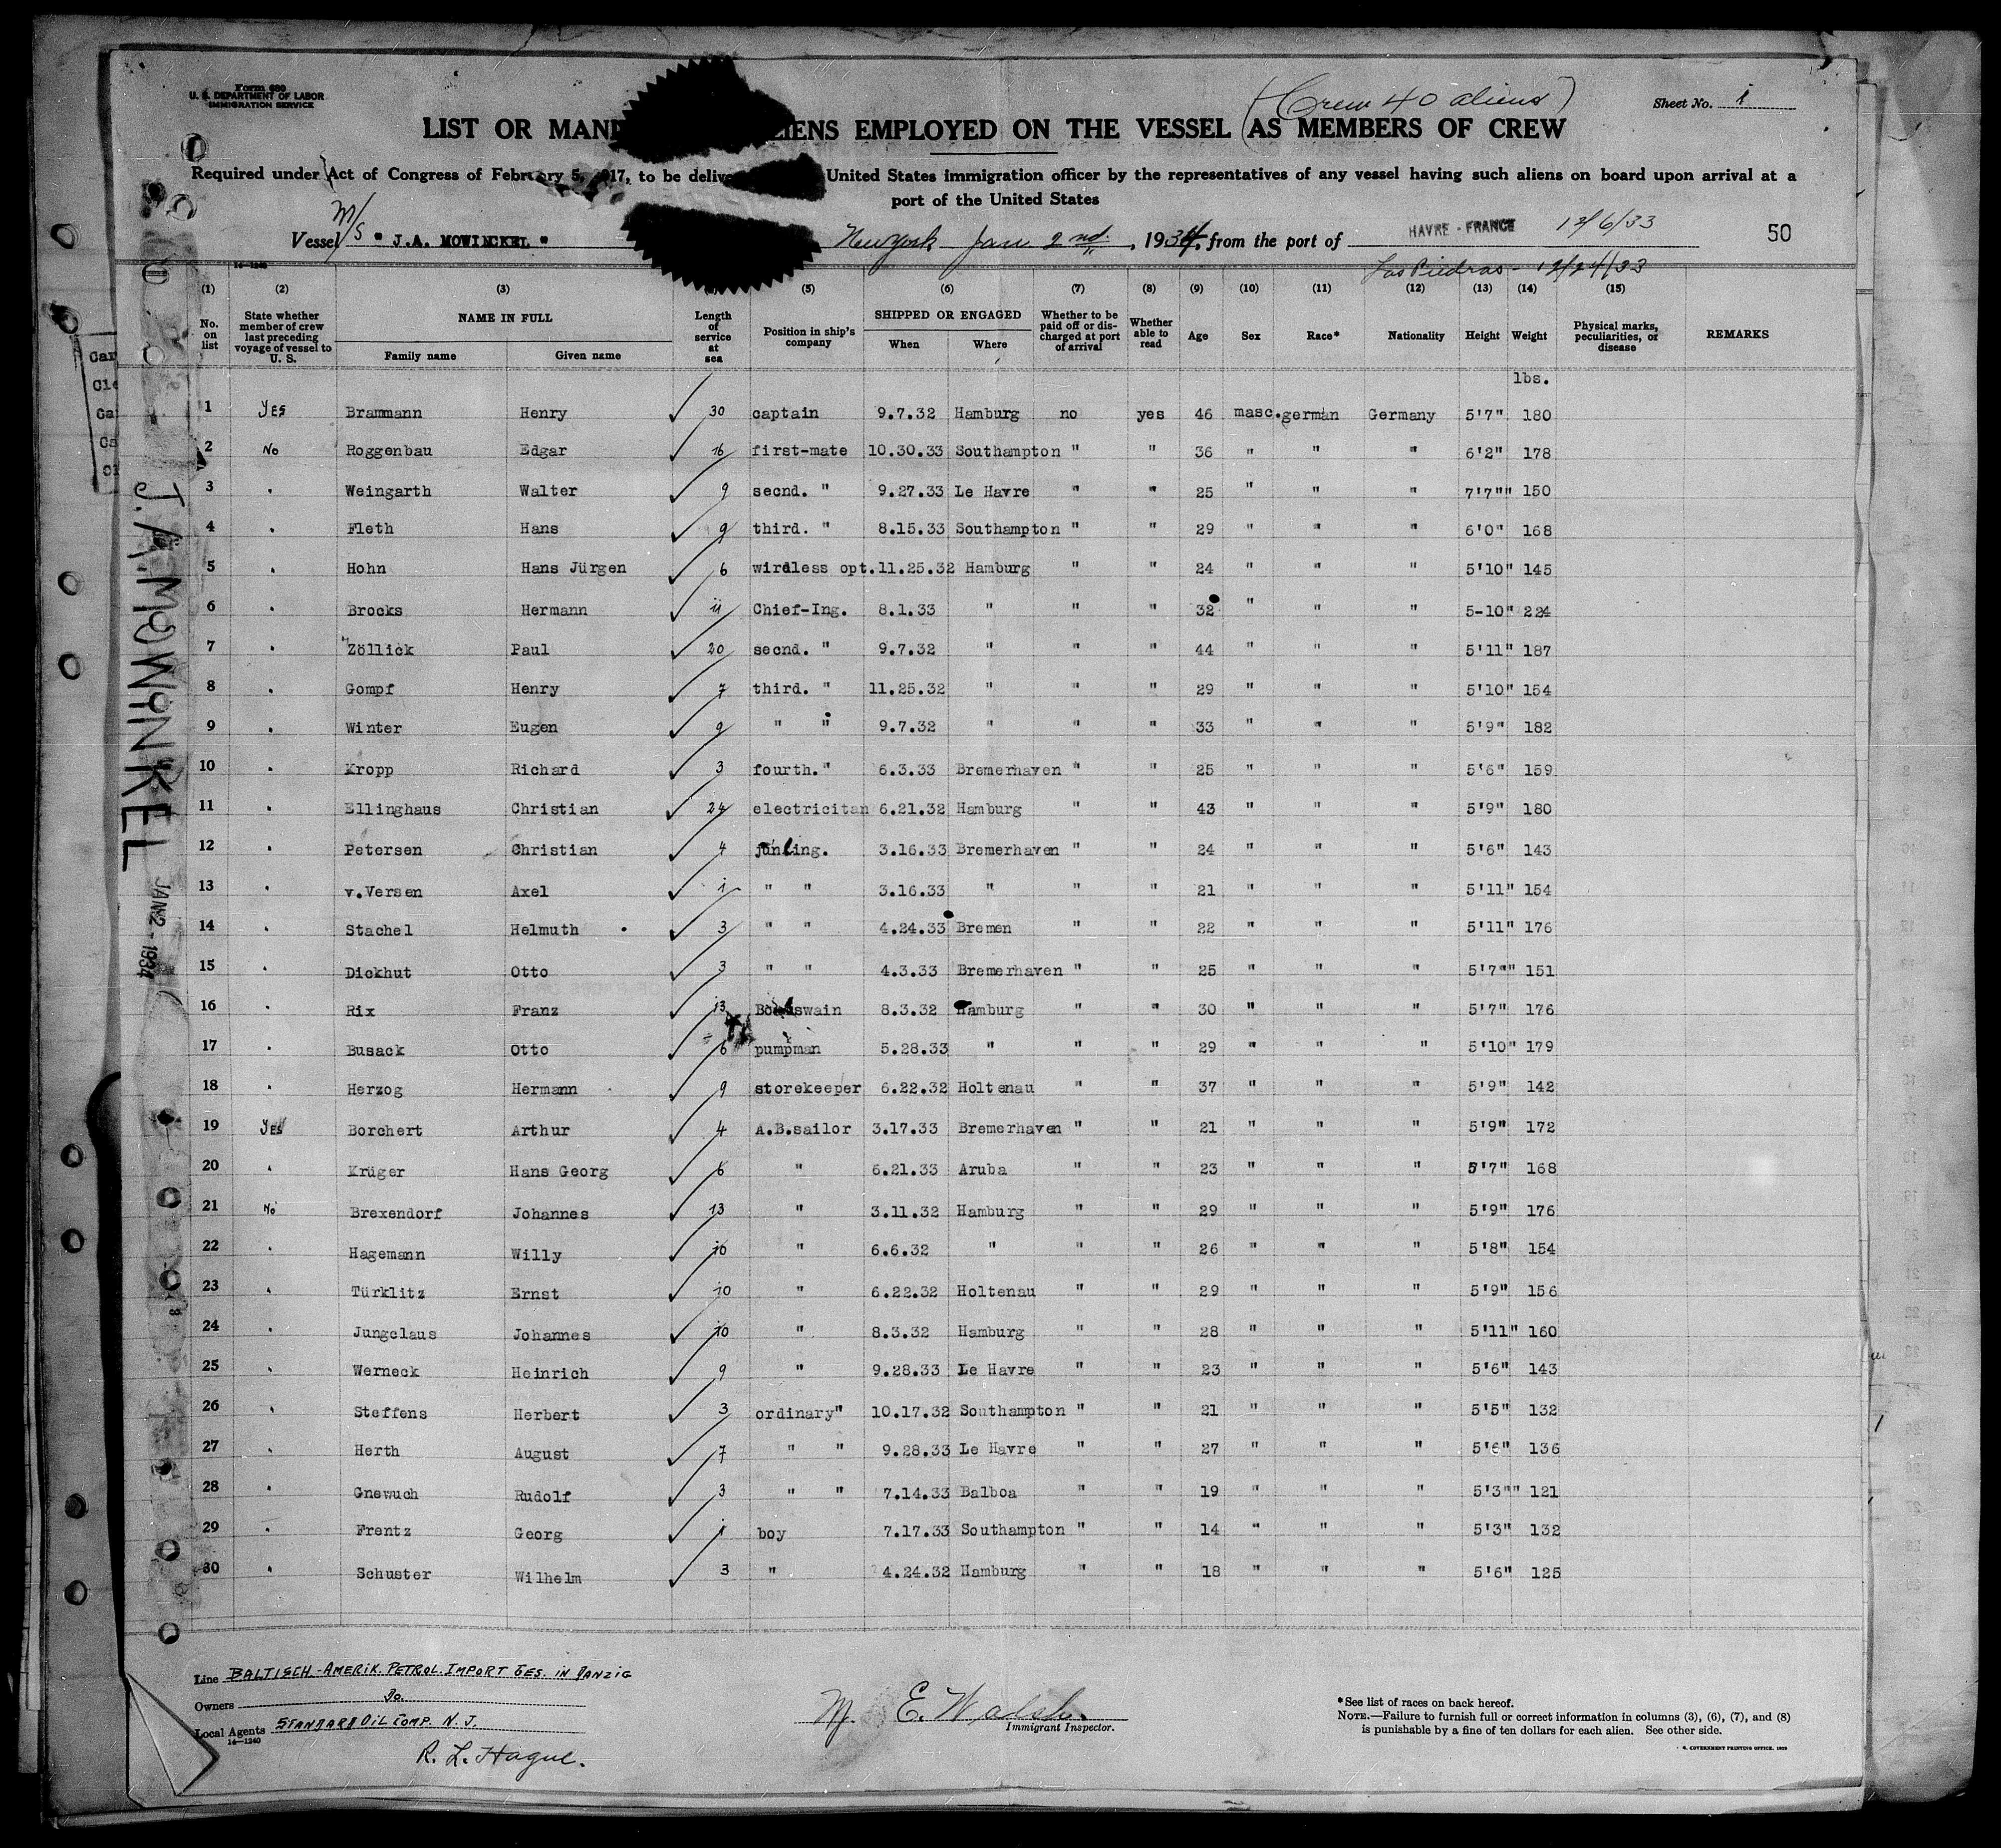 Form 680
U. S. DEPARTMENT OF LABOR
IMMIGRATION SERVICE
(Crew 40 aliens)
Sheet No. 1
LIST OR MAN IENS EMPLOYED ON THE VESSEL AS MEMBERS OF CREW
Required under Act of Congress of February 5, 1917, to be delive United States immigration officer by the representatives of any vessel having such aliens on board upon arrival at a
port of the United States
Vessel M/S " J.A. MOWINCKEL " New York Jan 2nd, 1934, from the port of HAVRE - FRANCE 12/6/33 50
Las Piedras - 12/24/33
14-1240
(1) (2) (3) (5) (6) (7) (8) (9) (10) (11) (12) (13) (14) (15)
No. on list State whether member of crew last preceding voyage of vessel to U. S. NAME IN FULL Family name Given name Length of service at sea Position in ship's company SHIPPED OR ENGAGED When Where Whether to be paid off or discharged at port of arrival Whether able to read Age Sex Race* Nationality Height Weight Physical marks, peculiarities, or disease REMARKS
lbs.
1 YES Brammann Henry 30 captain 9.7.32 Hamburg no yes 46 masc. german Germany 5'7" 180
2 No Roggenbau Edgar 16 first-mate 10.30.33 Southampton " " 36 " " " 6'2" 178
3 . Weingarth Walter 9 secnd. " 9.27.33 Le Havre " " 25 " " " 7'7"" 150
4 . Fleth Hans 9 third. " 8.15.33 Southampton " " 29 " " " 6'0" 168
5 . Hohn Hans Jürgen 6 wirdless opt. 11.25.32 Hamburg " " 24 " " " 5'10" 145
6 . Brocks Hermann 11 Chief-Ing. 8.1.33 " " " 32 " " " 5-10" 224
7 . Zöllick Paul 20 secnd. " 9.7.32 " " " 44 " " " 5'11" 187
8 . Gompf Henry 7 third. " 11.25.32 " " " 29 " " " 5'10" 154
9 . Winter Eugen 9 " " 9.7.32 " " " 33 " " " 5'9" 182
10 . Kropp Richard 3 fourth." 6.3.33 Bremerhaven " " 25 " " " 5'6" 159
11 . Ellinghaus Christian 24 electricitan 6.21.32 Hamburg " " 43 " " " 5'9" 180
12 . Petersen Christian 4 jun.ing. 3.16.33 Bremerhaven " " 24 " " " 5'6" 143
13 . v.Versen Axel 1 " " 3.16.33 " " " 21 " " " 5'11" 154
14 . Stachel Helmuth 3 " " 4.24.33 Bremen " " 22 " " " 5'11" 176
15 . Dickhut Otto 3 " " 4.3.33 Bremerhaven " " 25 " " " 5'7"" 151
16 . Rix Franz 13 Boatswain 8.3.32 Hamburg " " 30 " " " 5'7" 176
17 . Busack Otto 6 pumpman 5.28.33 " " " 29 " " " 5'10" 179
18 . Herzog Hermann 9 storekeeper 6.22.32 Holtenau " " 37 " " " 5'9" 142
19 YES Borchert Arthur 4 A.B.sailor 3.17.33 Bremerhaven " " 21 " " " 5'9" 172
20 . Krüger Hans Georg 6 " 6.21.33 Aruba " " 23 " " " 5'7" 168
21 No Brexendorf Johannes 13 " 3.11.32 Hamburg " " 29 " " " 5'9" 176
22 . Hagemann Willy 10 " 6.6.32 " " " 26 " " " 5'8" 154
23 . Türklitz Ernst 10 " 6.22.32 Holtenau " " 29 " " " 5'9" 156
24 . Jungclaus Johannes 10 " 8.3.32 Hamburg " " 28 " " " 5'11" 160
25 . Werneck Heinrich 9 " 9.28.33 Le Havre " " 23 " " " 5'6" 143
26 . Steffens Herbert 3 ordinary" 10.17.32 Southampton " " 21 " " " 5'5" 132
27 . Herth August 7 " " 9.28.33 Le Havre " " 27 " " " 5'6" 136
28 . Gnewuch Rudolf 3 " " 7.14.33 Balboa " " 19 " " " 5'3"" 121
29 . Frentz Georg 1 boy 7.17.33 Southampton " " 14 " " " 5'3" 132
30 . Schuster Wilhelm 3 " 4.24.32 Hamburg " " 18 " " " 5'6" 125
J.A. MOWINKEL JAN 2 - 1934
Line BALTISCH-AMERIK. PETROL. IMPORT GES. IN DANZIG
Owners Do.
Local Agents STANDARD OIL COMP. N. J.
14-1240
R. L. Hague.
M. E. Walsh
Immigrant Inspector.
*See list of races on back hereof.
NOTE.—Failure to furnish full or correct information in columns (3), (6), (7), and (8)
is punishable by a fine of ten dollars for each alien. See other side.
GOVERNMENT PRINTING OFFICE. 1929